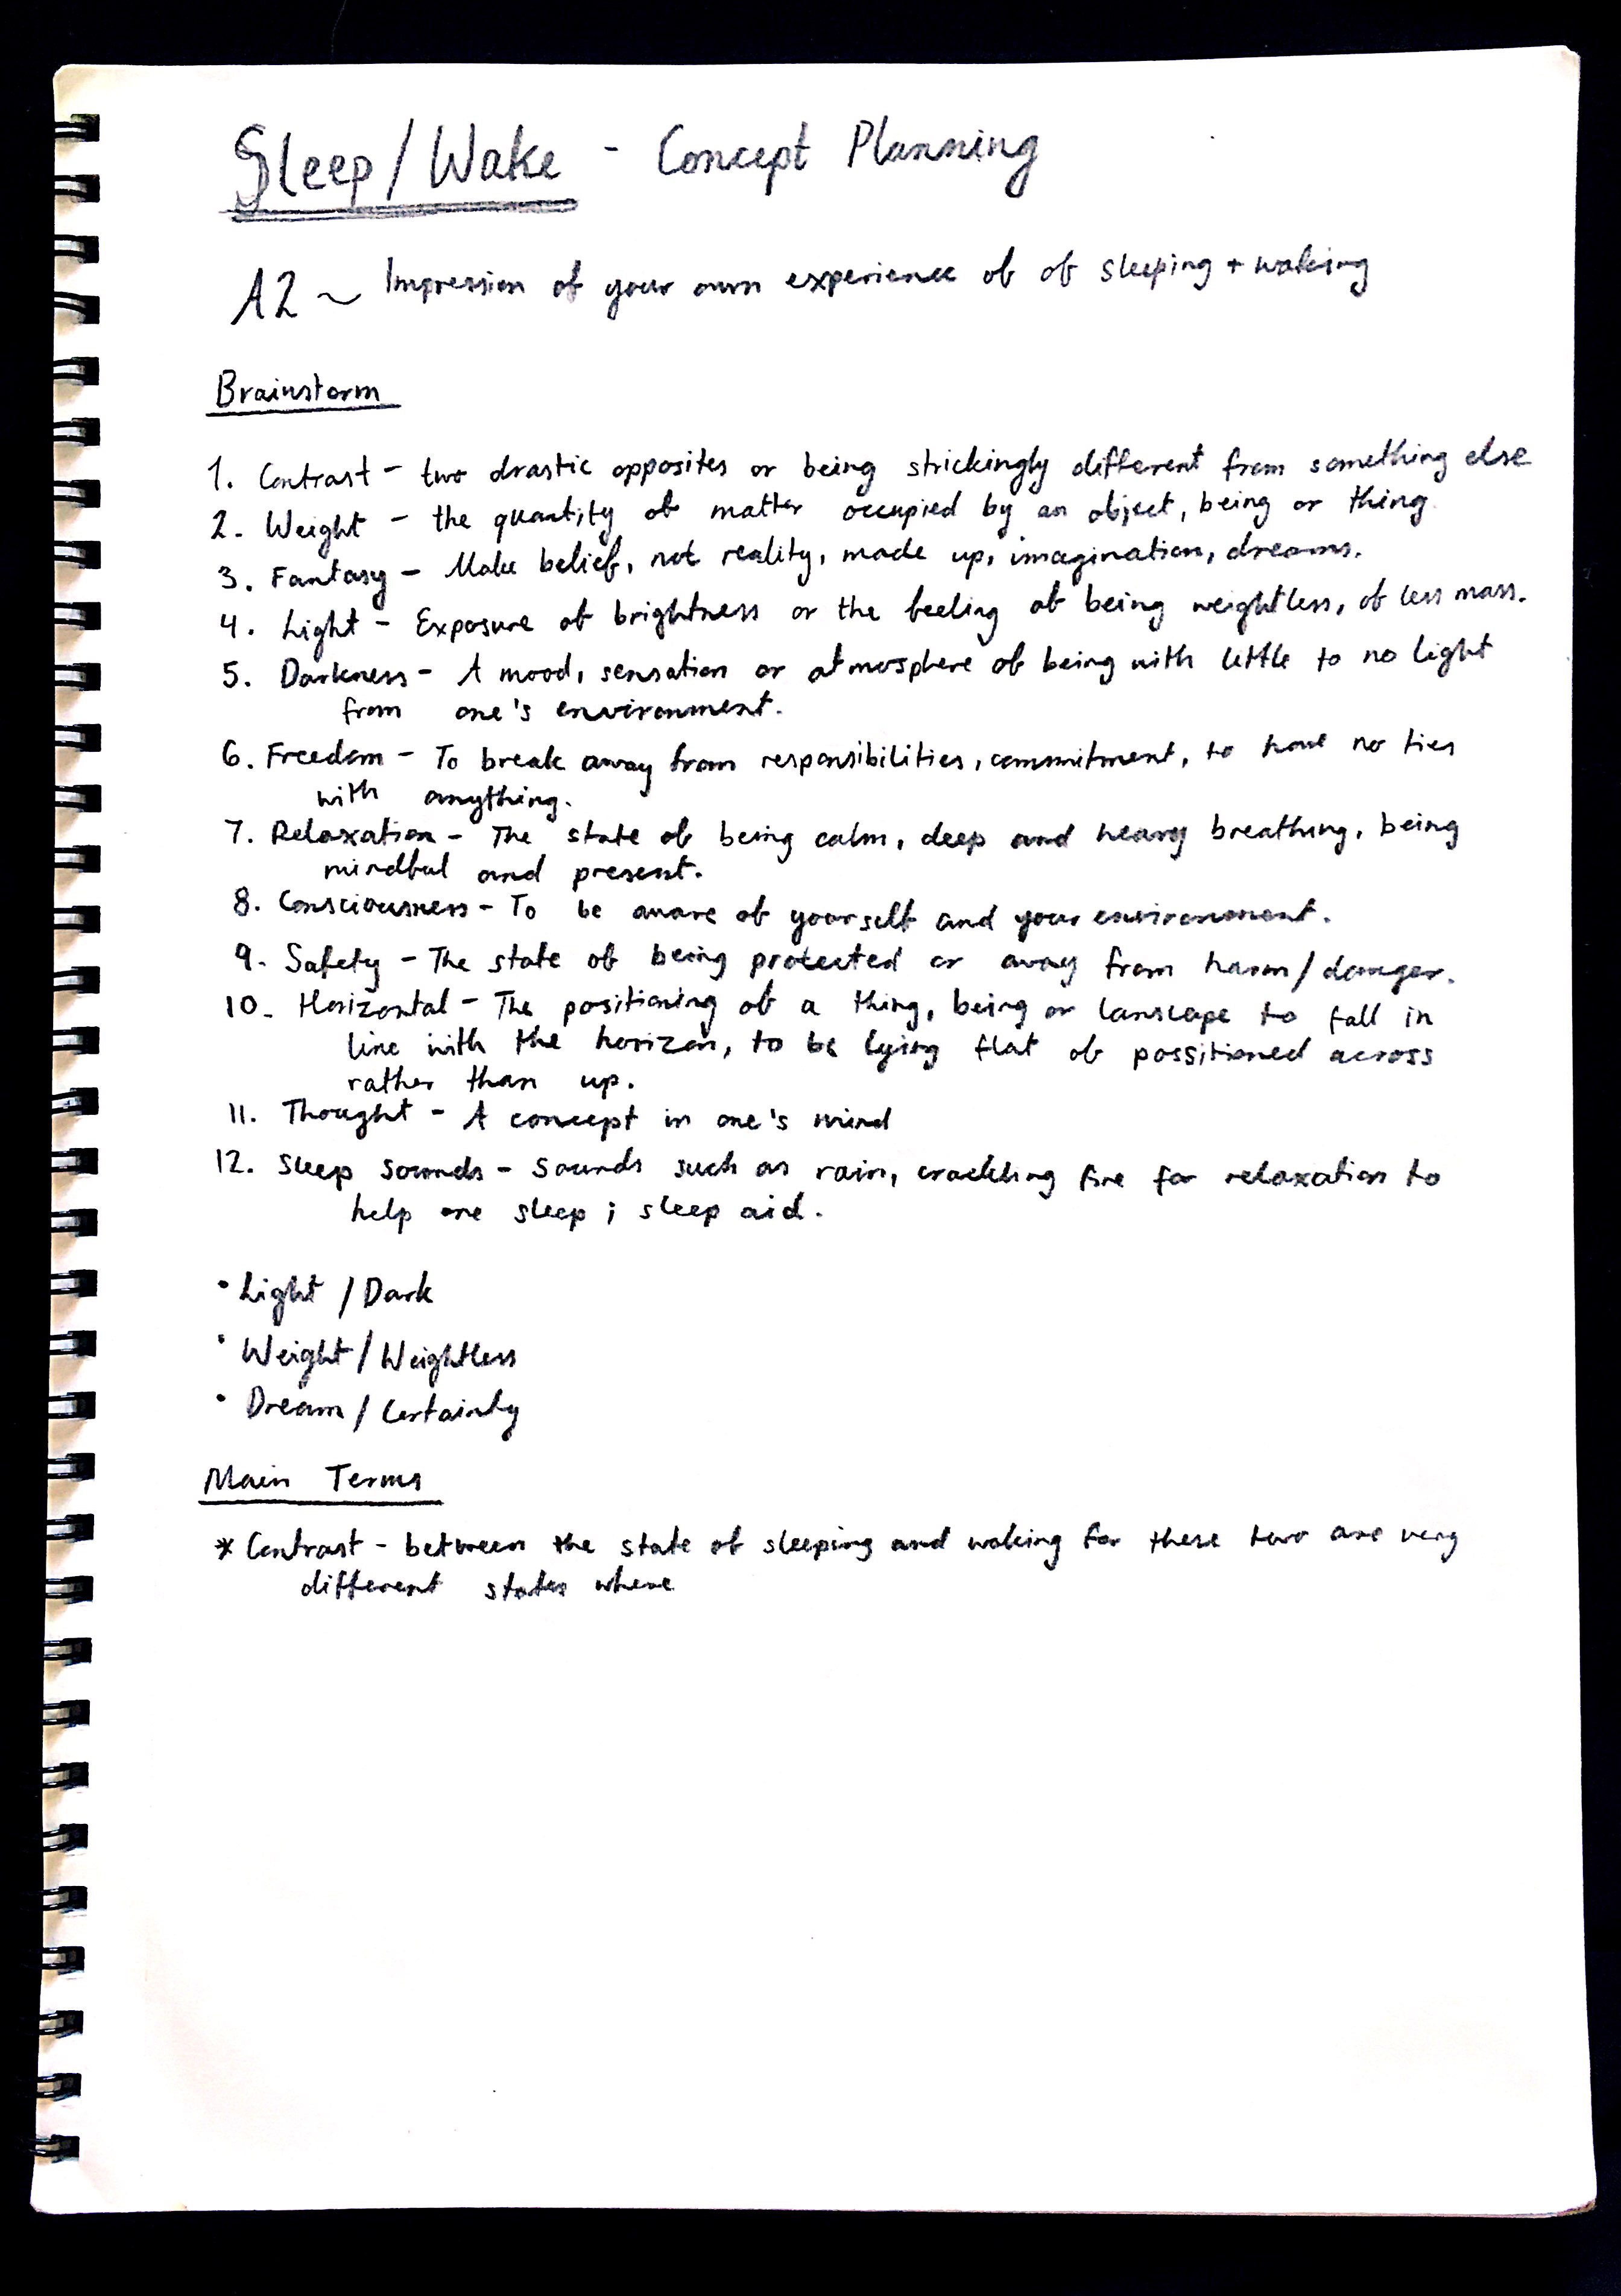 Sleep/Wake - Concept Planning
A2 ~ Impression of your own experience of of sleeping + waking
Brainstorm
1. Contrast - two drastic opposites or being strickingly different from something else
2. Weight - the quantity of matter occupied by an object, being or thing.
3. Fantasy - Make belief, not reality, made up, imagination, dreams.
4. Light - Exposure of brightness or the feeling of being weightless, of less mass.
5. Darkness - A mood, sensation or atmosphere of being with little to no light
from one's environment.
6. Freedom - To break away from responsibilities, commitment, to have no ties
with anything.
7. Relaxation - The state of being calm, deep and heavy breathing, being
mindful and present.
8. Consciousness - To be aware of yourself and your environment.
9. Safety - The state of being protected or away from harm/danger.
10. Horizontal - The positioning of a thing, being or lanscape to fall in
line with the horizon, to be lying flat of possitioned across
rather than up.
11. Thought - A concept in one's mind
12. Sleep sounds - Sounds such as rain, crackling fire for relaxation to
help one sleep ; sleep aid.
• Light / Dark
• Weight / Weightless
• Dream / Certainty
Main Terms
* Contrast - between the state of sleeping and waking for these two are very
different states where